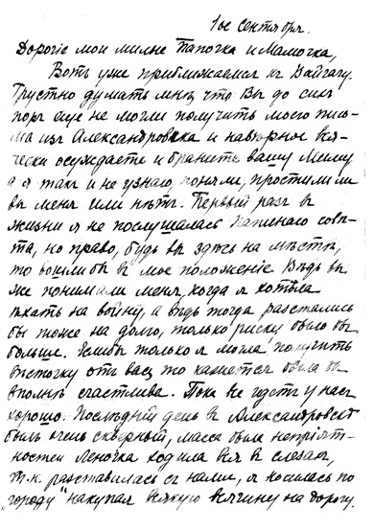 1ое сентября.
Дорогіе мои милые Папочка и Мамочка,
Вотъ уже приближаемся къ Вайгачу.
Грустно думать мнѣ, что Вы до сихъ
поръ еще не могли получить моего пись-
ма изъ Александровска и навѣрное вся-
чески осуждаете и браните вашу Милку
а я такъ и не узнаю, поняли, простили ли
вы меня или нѣтъ. Первый разъ въ
жизни я не послушалась папинаго совѣ-
та, но право, будь вы здѣсь на мѣстѣ,
то вошли бы въ мое положеніе Вѣдь вы
же понимали меня, когда я хотѣла
ѣхать на войну, а вѣдь тогда разстались
бы тоже на долго, только риску было бы
больше. Еслибы только я могла получить
вѣсточку отъ васъ, то кажется была бы
вполнѣ счастлива. Пока все идетъ у насъ
хорошо. Послѣдній день въ Александровскѣ
былъ очень скверный, масса была непріят-
ностей Леночка ходила вся въ слезахъ,
т.к. разставалась съ нами, я носилась по
"городу" накупая всякую всячину на дорогу.